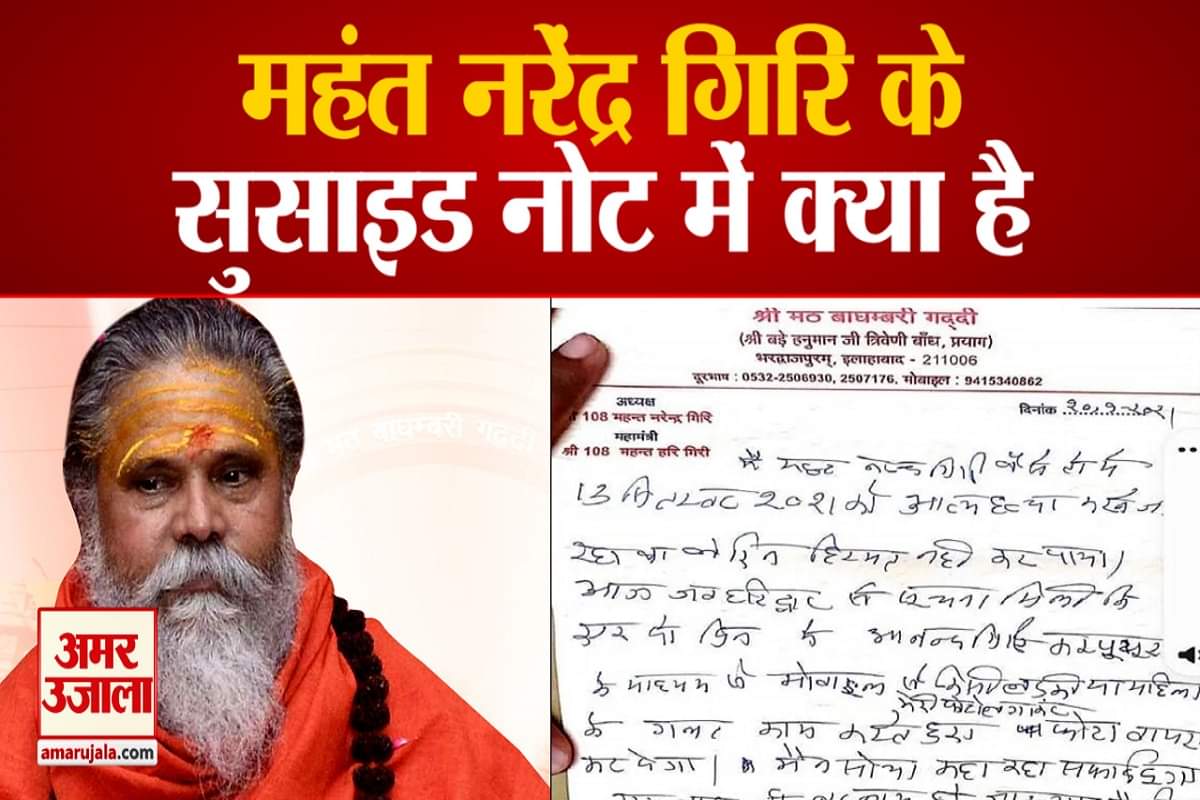 महंत नरेंद्र गिरि के
सुसाइड नोट में क्या है
श्री मठ बाघम्बरी गद्दी
(श्री बड़े हनुमान जी त्रिवेणी बाँध, प्रयाग)
भरद्वाजपुरम्, इलाहाबाद - 211006
दूरभाष : 0532-2506930, 2507176, मोबाइल : 9415340862
अध्यक्ष
108 महन्त नरेन्द्र गिरि
महामंत्री
श्री 108 महन्त हरि गिरी
दिनांक
मठ बाघम्बरी गद्दी
मै
13 सितम्बर २०२१ को आत्महत्या करने जा
रहा था हिम्मत नही कर पाया।
आज जब हरिद्वार से सूचना मिली कि
एक दो दिन मे आनन्द गिरि कम्प्यूटर
के माध्यम से मोबाइल से किसी लड़की या महिला
के गलत काम करते हुए फोटो वायरल
कर देगा। मैने सोचा कहा सफाई
अमर
उजाला
amarujala.com